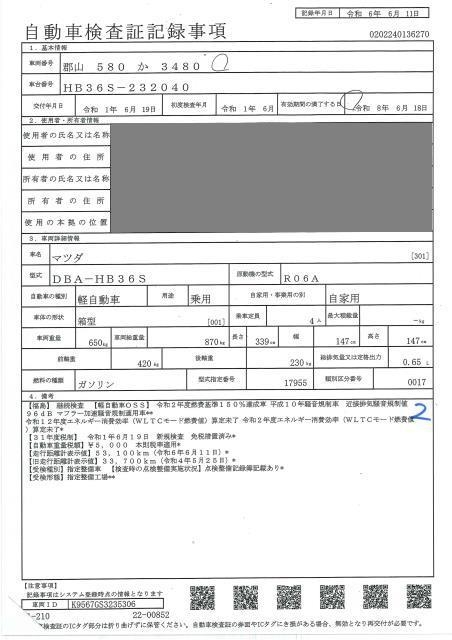 記録年月日 令和 6年 6月 11日
自動車検査証記録事項
0202240136270
1. 基本情報
車両番号 郡山 580 か 3480
車台番号 HB36S-232040
交付年月日 令和 1年 6月 19日 初度検査年月 令和 1年 6月 有効期間の満了する日 令和 8年 6月 18日
2. 使用者・所有者情報
使用者の氏名又は名称
使用者の住所
所有者の氏名又は名称
所有者の住所
使用の本拠の位置
3. 車両詳細情報
車名 マツダ [301]
型式 DBA-HB36S 原動機の型式 R06A
自動車の種別 軽自動車 用途 乗用 自家用・事業用の別 自家用
車体の形状 箱型 [001] 乗車定員 4人 最大積載量 -kg
車両重量 650kg 車両総重量 870kg 長さ 339cm 幅 147cm 高さ 147cm
前軸重 420kg 後軸重 230kg 総排気量又は定格出力 0.65 L
燃料の種類 ガソリン 型式指定番号 17955 類別区分番号 0017
4. 備考
【福島】 継続検査 【軽自動車OSS】 令和2年度燃費基準150%達成車 平成10年騒音規制車 近接排気騒音規制値
96dB マフラー加速騒音規制適用車**
令和12年度エネルギー消費効率(WLTCモード燃費値)算定未了 令和2年度エネルギー消費効率(WLTCモード燃費値
)算定未了*
【31年度税制】 令和1年6月19日 新規検査 免税措置済み*
【自動車重量税額】¥5,000 本則税率適用*
【走行距離計表示値】53,100km(令和6年6月11日)*
【旧走行距離計表示値】33,700km(令和4年5月25日)*
【受検種別】指定整備車 【検査時の点検整備実施状況】点検整備記録簿記載あり*
【受検形態】指定整備工場**
2
【注意事項】
記録事項はシステム登録時点の情報となります
車両ID K9567GS3235306
-210 22-00852
検査証のICタグ部分は折り曲げずに保管ください。自動車検査証の券面やICタグにき損がある場合、無効となり再交付が必要です。